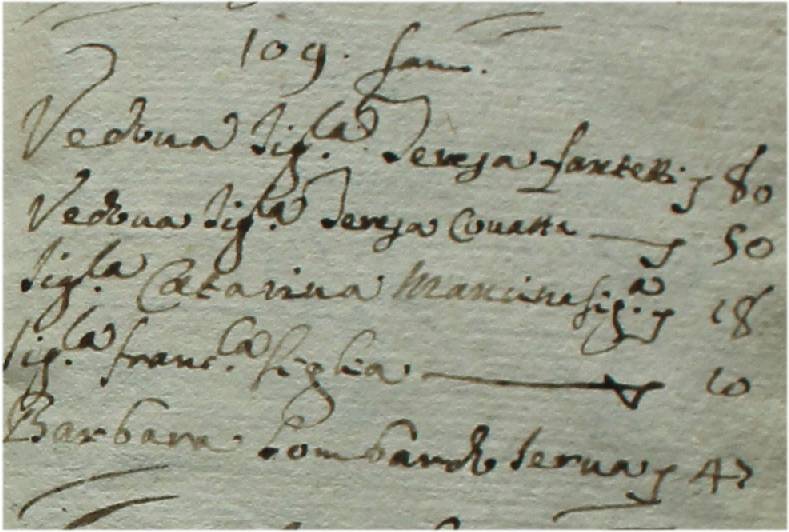 109. fam.
Vedova Sig.la Teresa fantetti 80
Vedova Sig.la Teresa Covatta 50
Sig.la Catarina Mancini fig.a 18
Sig.la Franc.ca figlia 10
Barbara Lombardo serva 47